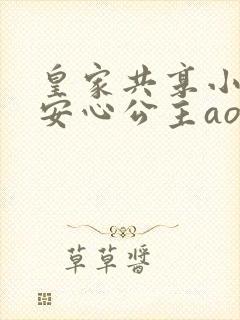 皇家共享小
安心公主ao
草草酱